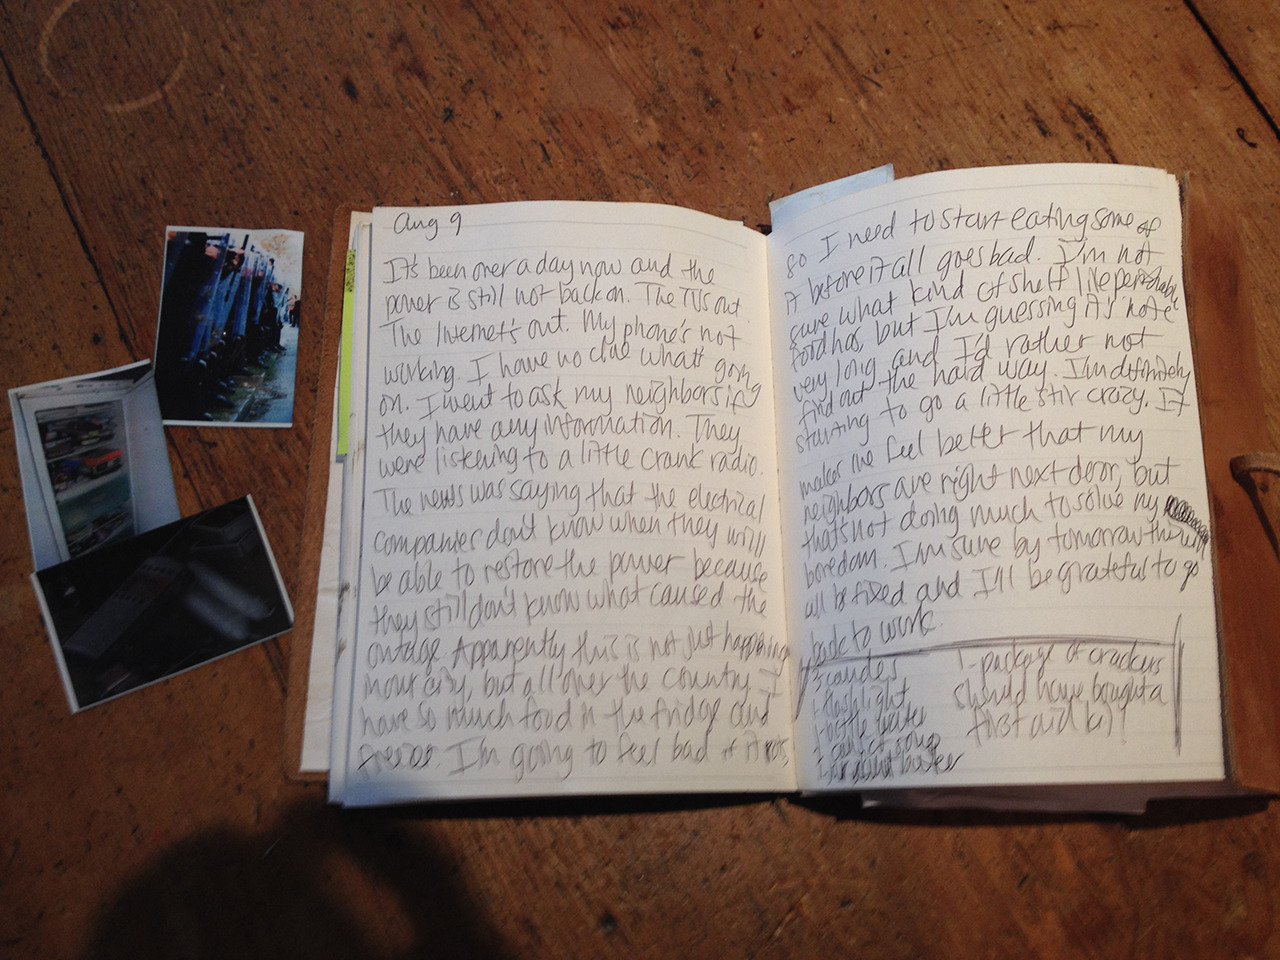 Aug 9
It's been over a day now and the
power is still not back on. The TVs out.
The Internet's out. My phone's not
working. I have no clue what's going
on. I went to ask my neighbors if
they have any information. They
were listening to a little crank radio.
The news was saying that the electrical
companies don't know when they will
be able to restore the power because
they still don't know what caused the
outage. Apparently this is not just happening
in our city, but all over the country. I
have so much food in the fridge and
freezer. I'm going to feel bad if it rots,
so I need to start eating some of
it before it all goes bad. I'm not
sure what kind of shelf life perishable
food has, but I'm guessing it's not
very long and I'd rather not
find out the hard way. I'm definitely
starting to go a little stir crazy. It
makes me feel better that my
neighbors are right next door, but
that's not doing much to solve my
boredom. I'm sure by tomorrow this will
all be fixed and I'll be grateful to go
back to work.
3 candles
1 flashlight
1 bottle water
1 can of soup
1 peanut butter
1 - package of crackers
should have bought a
first aid kit!